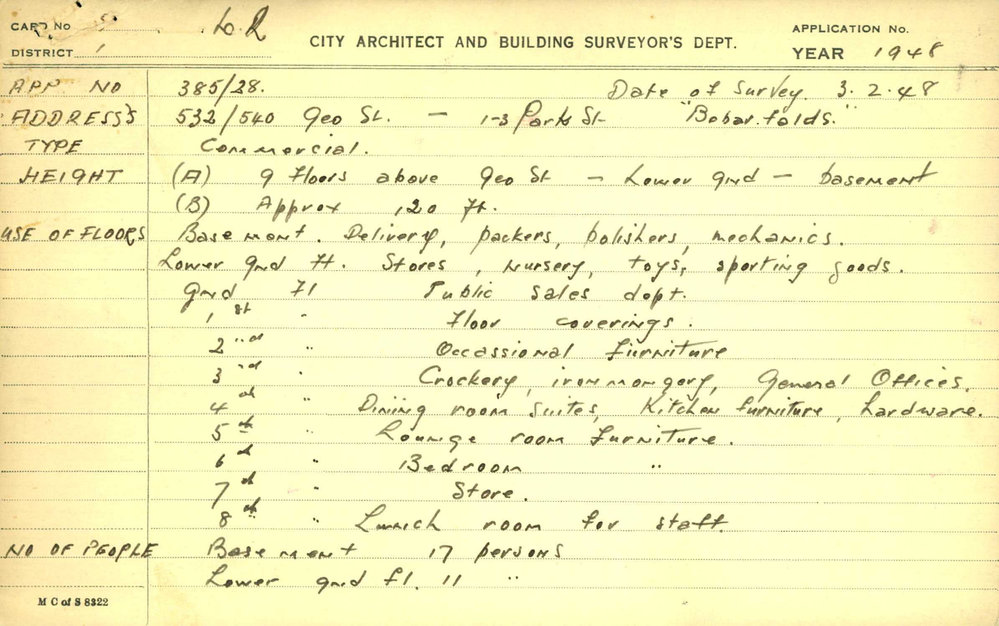 CARD No L.R APPLICATION No.
DISTRICT 1 CITY ARCHITECT AND BUILDING SURVEYOR'S DEPT. YEAR 1948
APN NO 385/28. Date of Survey. 3.2.48
ADDRESS'S 532/540 Geo St. — 1-3 Park St "Bebarfalds."
TYPE Commercial.
HEIGHT (A) 9 Floors above Geo St — Lower gnd — basement
(B) Approx 120 Ft.
USE OF FLOORS Basement. Delivery, packers, polishers, mechanics.
Lower gnd Fl. Stores, Nursery, toys, sporting goods.
Gnd Fl Public sales dept.
1st " Floor coverings.
2nd " Occassional Furniture
3rd " Crockery, ironmongery, General Offices.
4th " Dining room suites, Kitchen furniture, hardware.
5th " Lounge room furniture.
6th " Bedroom "
7th " Store.
8th " Lunch room for staff.
NO OF PEOPLE Basement 17 persons
Lower gnd fl. 11 "
M C of S 8322